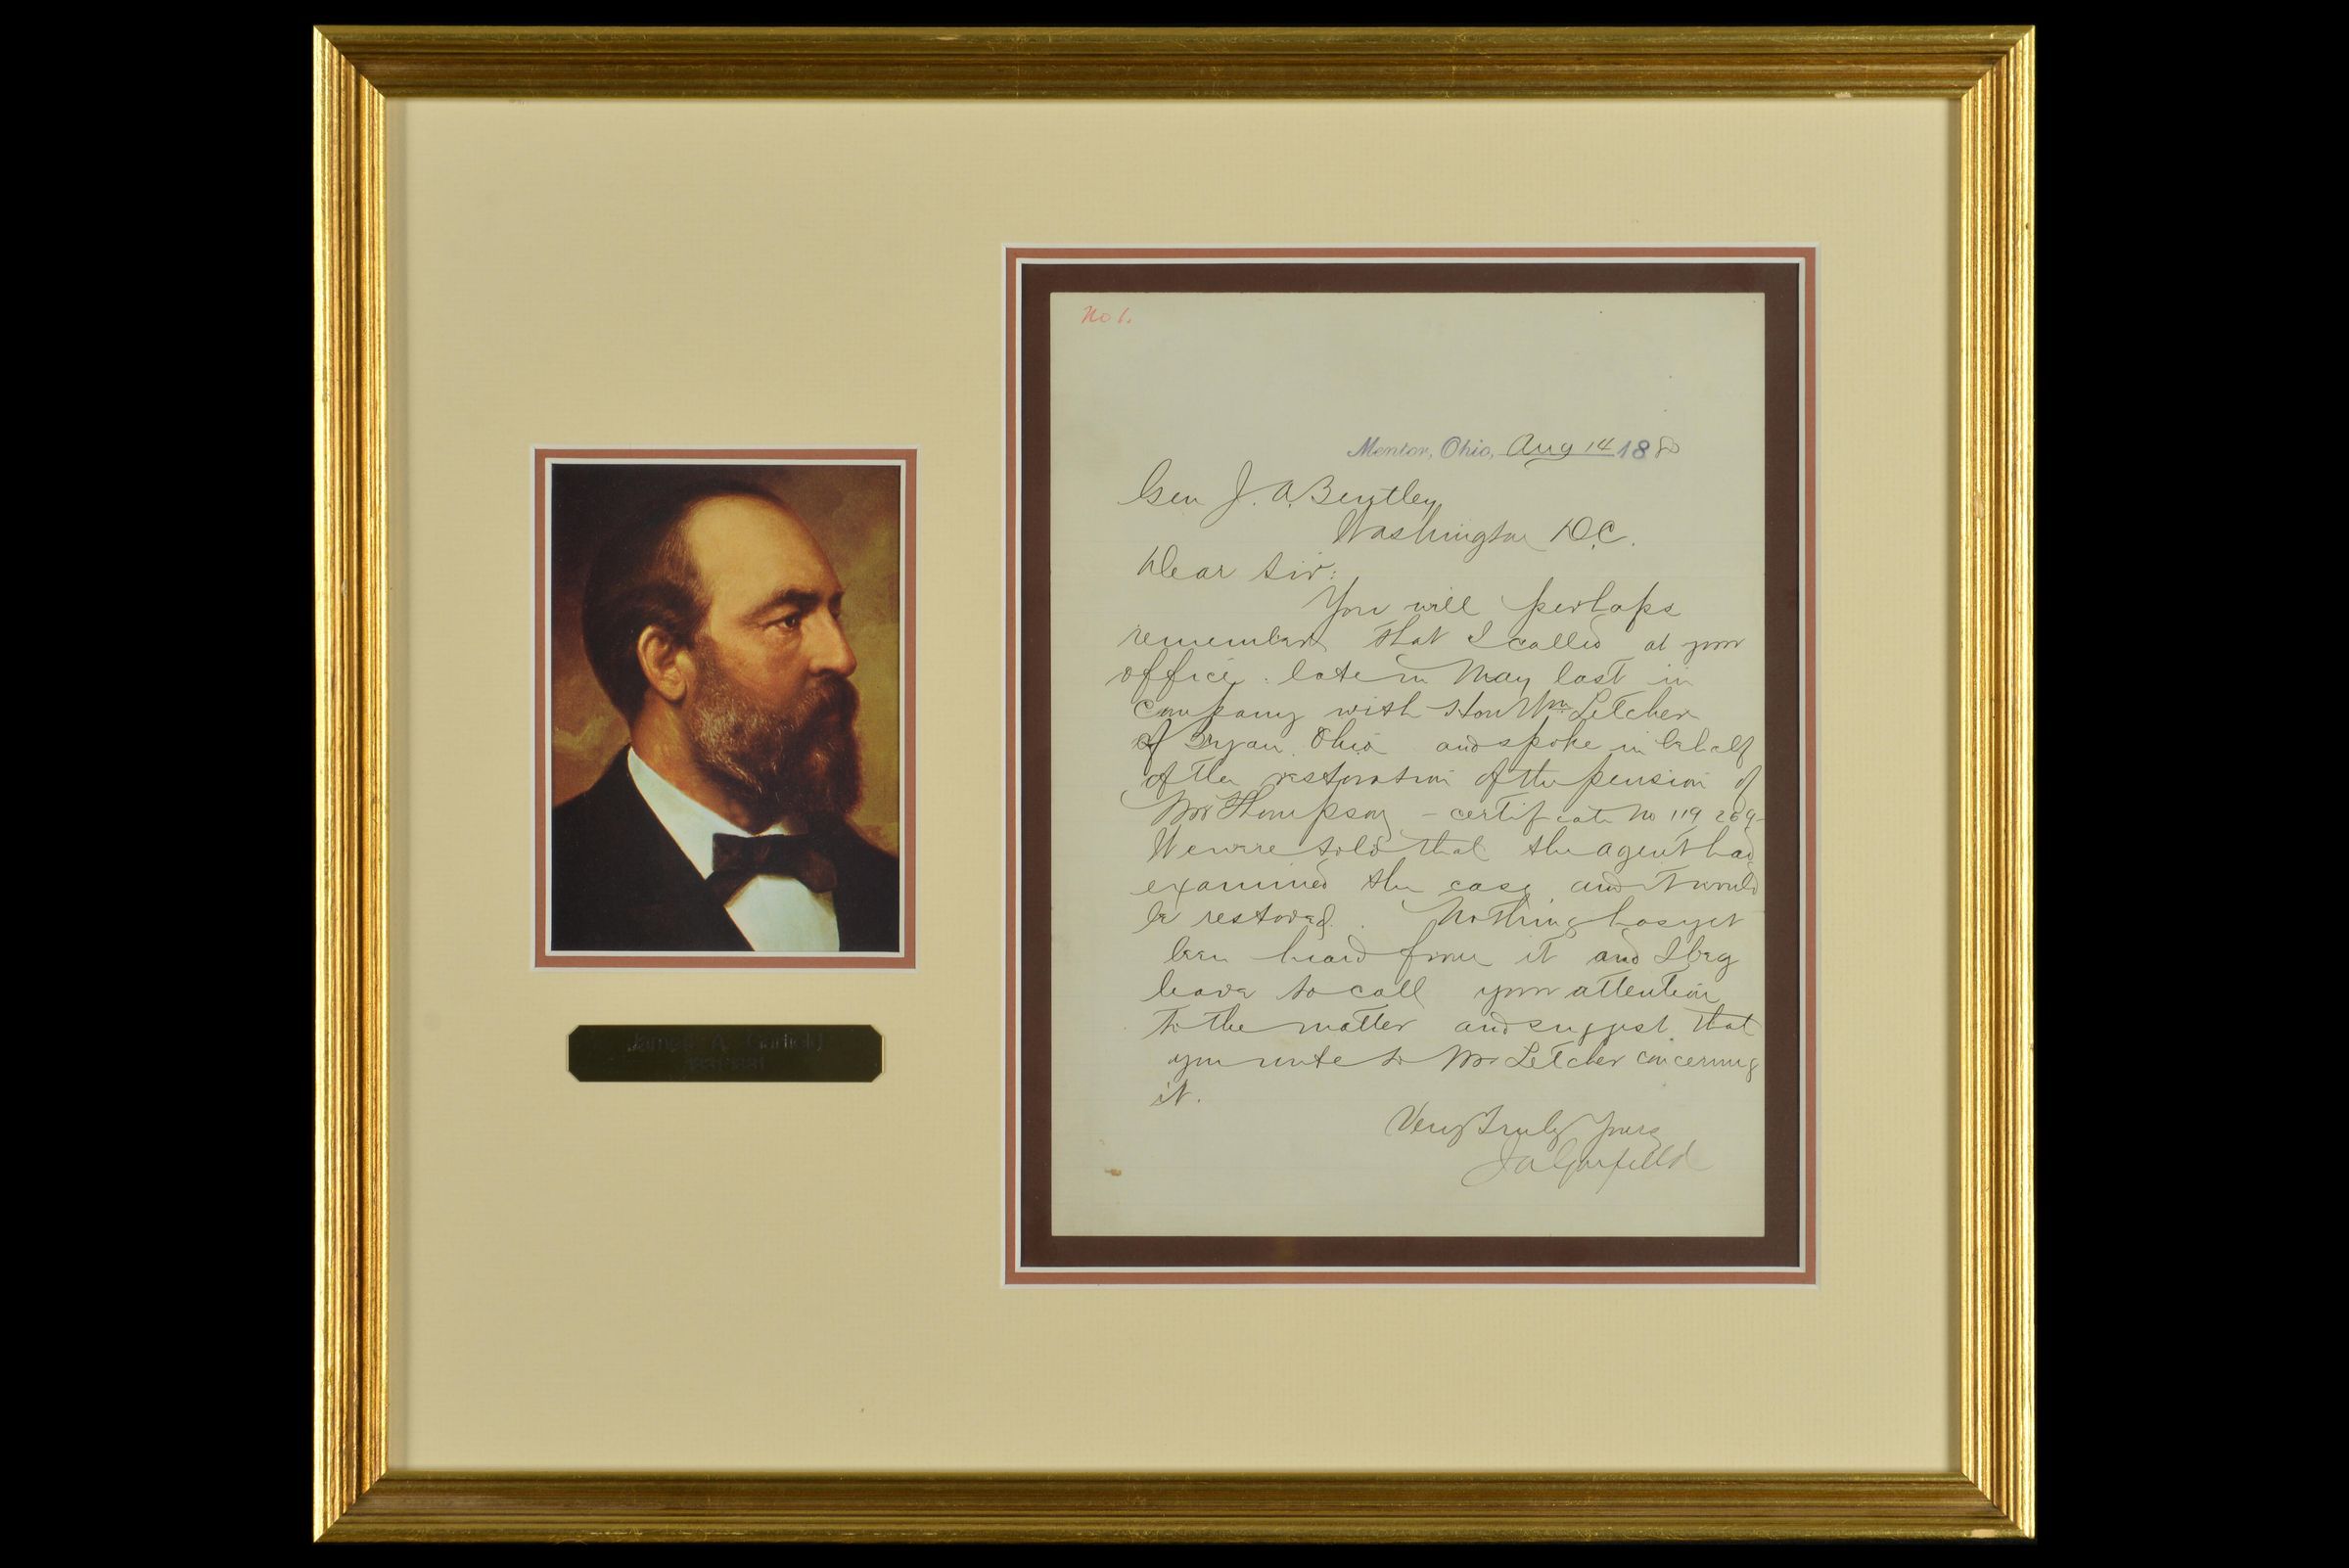 James A. Garfield
1831-1881
No 6.
Mentor, Ohio, Aug 14 1880
Gen J. A. Bentley,
Washington D.C.
Dear Sir:
You will perhaps
remember that I called at your
office late in May last in
company with Hon Wm Letcher
of Bryan, Ohio and spoke in behalf
of the restoration of the pension of
Thompson – certificate No 119
We were told that the agent had
examined the case and it would
be restored. Nothing has yet
been heard from it and I beg
leave to call your attention
to the matter and suggest that
you write to Mr Letcher concerning
it.
Very Truly Yours
J A Garfield